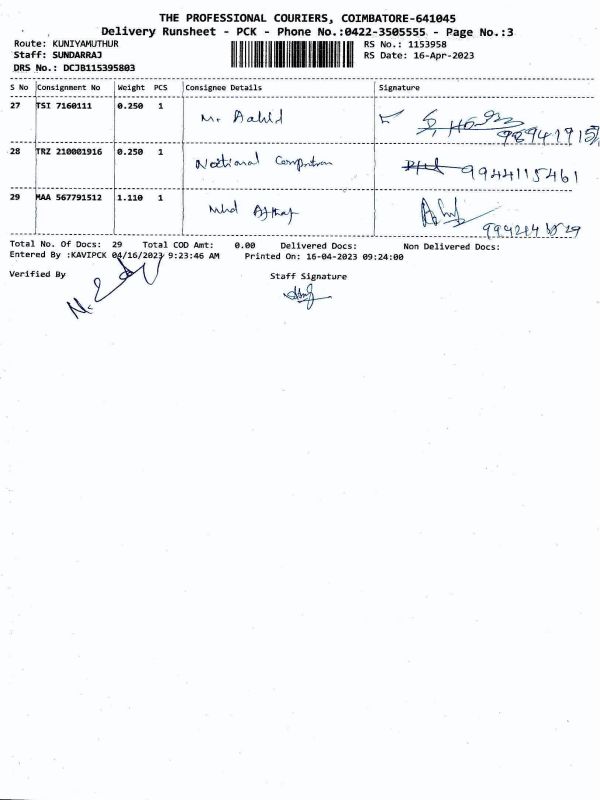 THE PROFESSIONAL COURIERS, COIMBATORE-641045
Delivery Runsheet - PCK - Phone No.:0422-3505555 - Page No.:3
Route: KUNIYAMUTHUR RS No.: 1153958
Staff: SUNDARRAJ RS Date: 16-Apr-2023
DRS No.: DCJB115395803
S No Consignment No Weight PCS Consignee Details Signature
27 TSI 7160111 0.250 1 Mr. Aahid
28 TRZ 210001916 0.250 1 National 9944115461
29 MAA 567791512 1.110 1 Mhd
Total No. Of Docs: 29 Total COD Amt: 0.00 Delivered Docs: Non Delivered Docs:
Entered By :KAVIPCK 04/16/2023 9:23:46 AM Printed On: 16-04-2023 09:24:00
Verified By Staff Signature